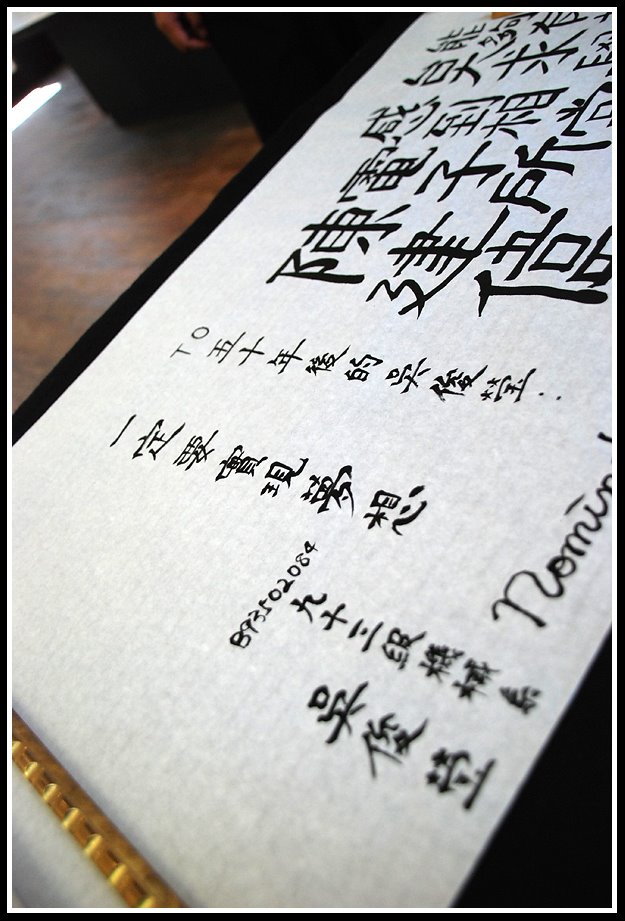 能夠有
感到相當
電子所
陳建信
TO 五十年後的吳俊瑩..
一定要實現夢想
B93502084
九十三級機械系
吳俊瑩